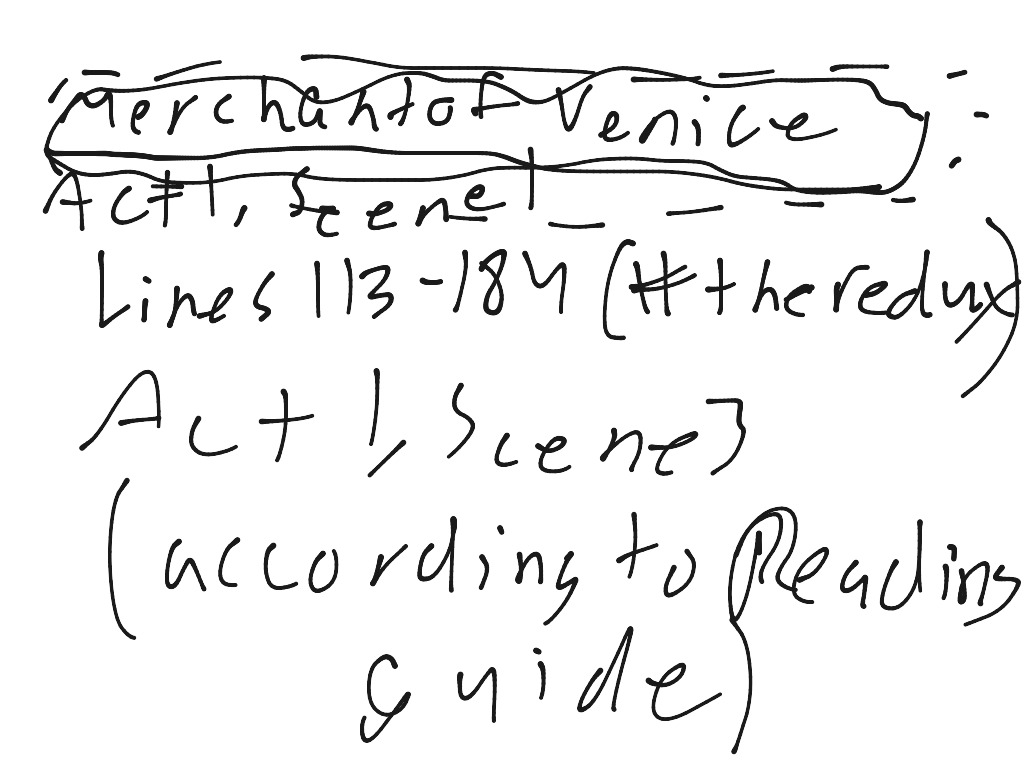 Merchant of Venice
Act 1, Scene 1
Lines 113-184 (#theredux)
Act 1, Scene 3
(according to Reading
guide)